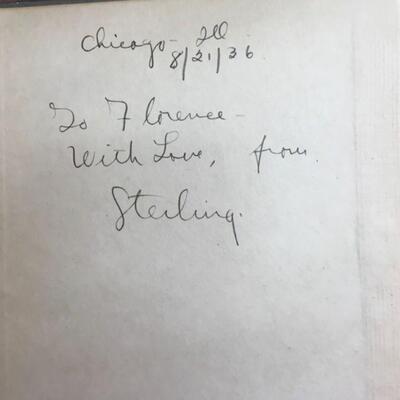 Chicago - Ill
8/21/36
To Florence -
With Love, from
Sterling.